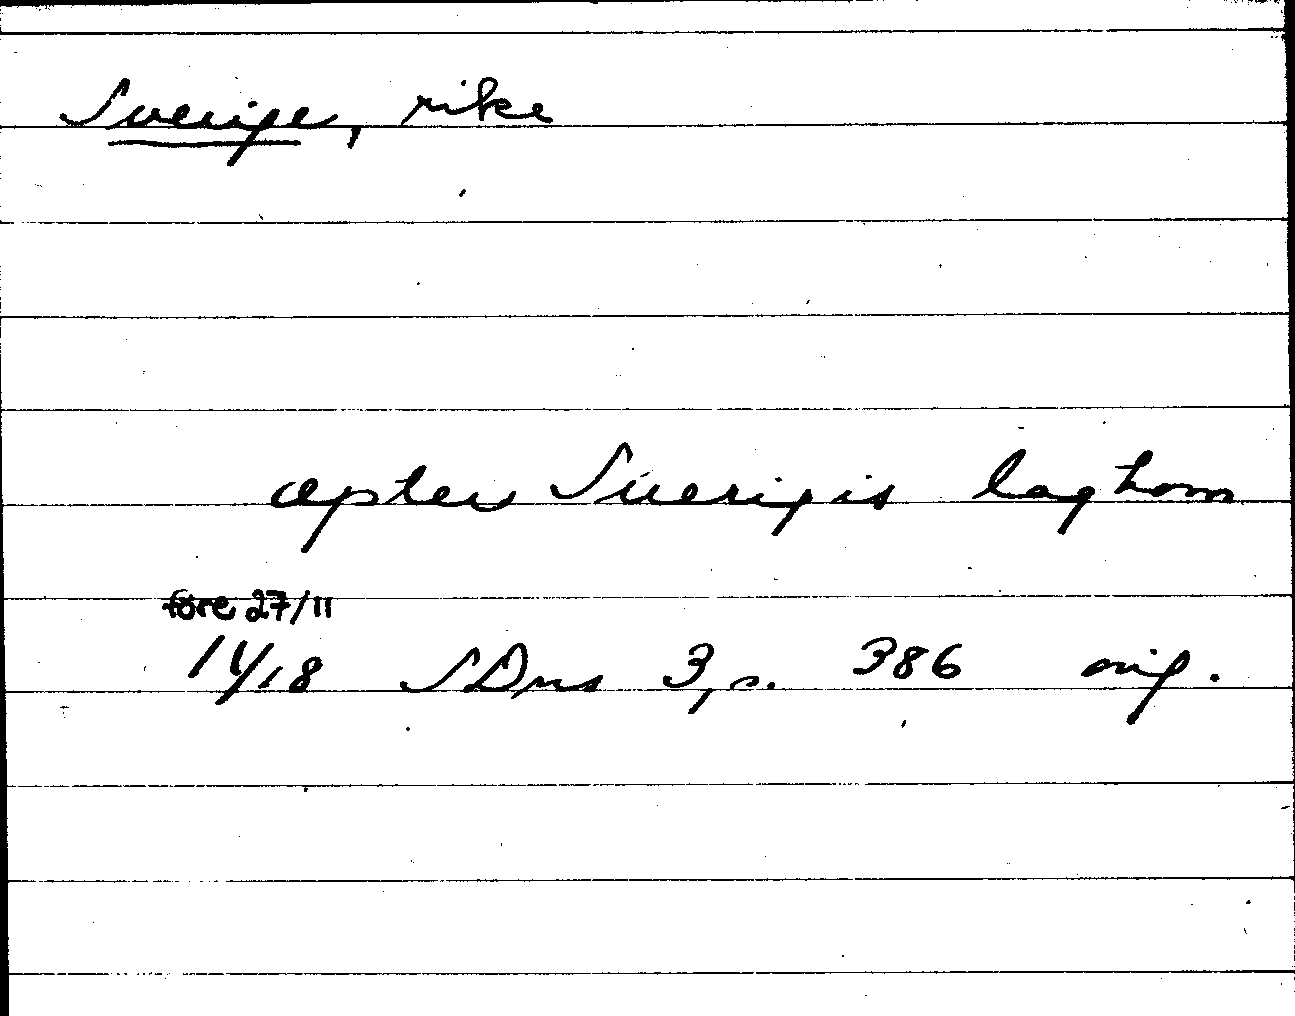 Sverige, rike
æpter Suerigis laghom
före 27/11
1418 SDns 3, s. 386 orig.